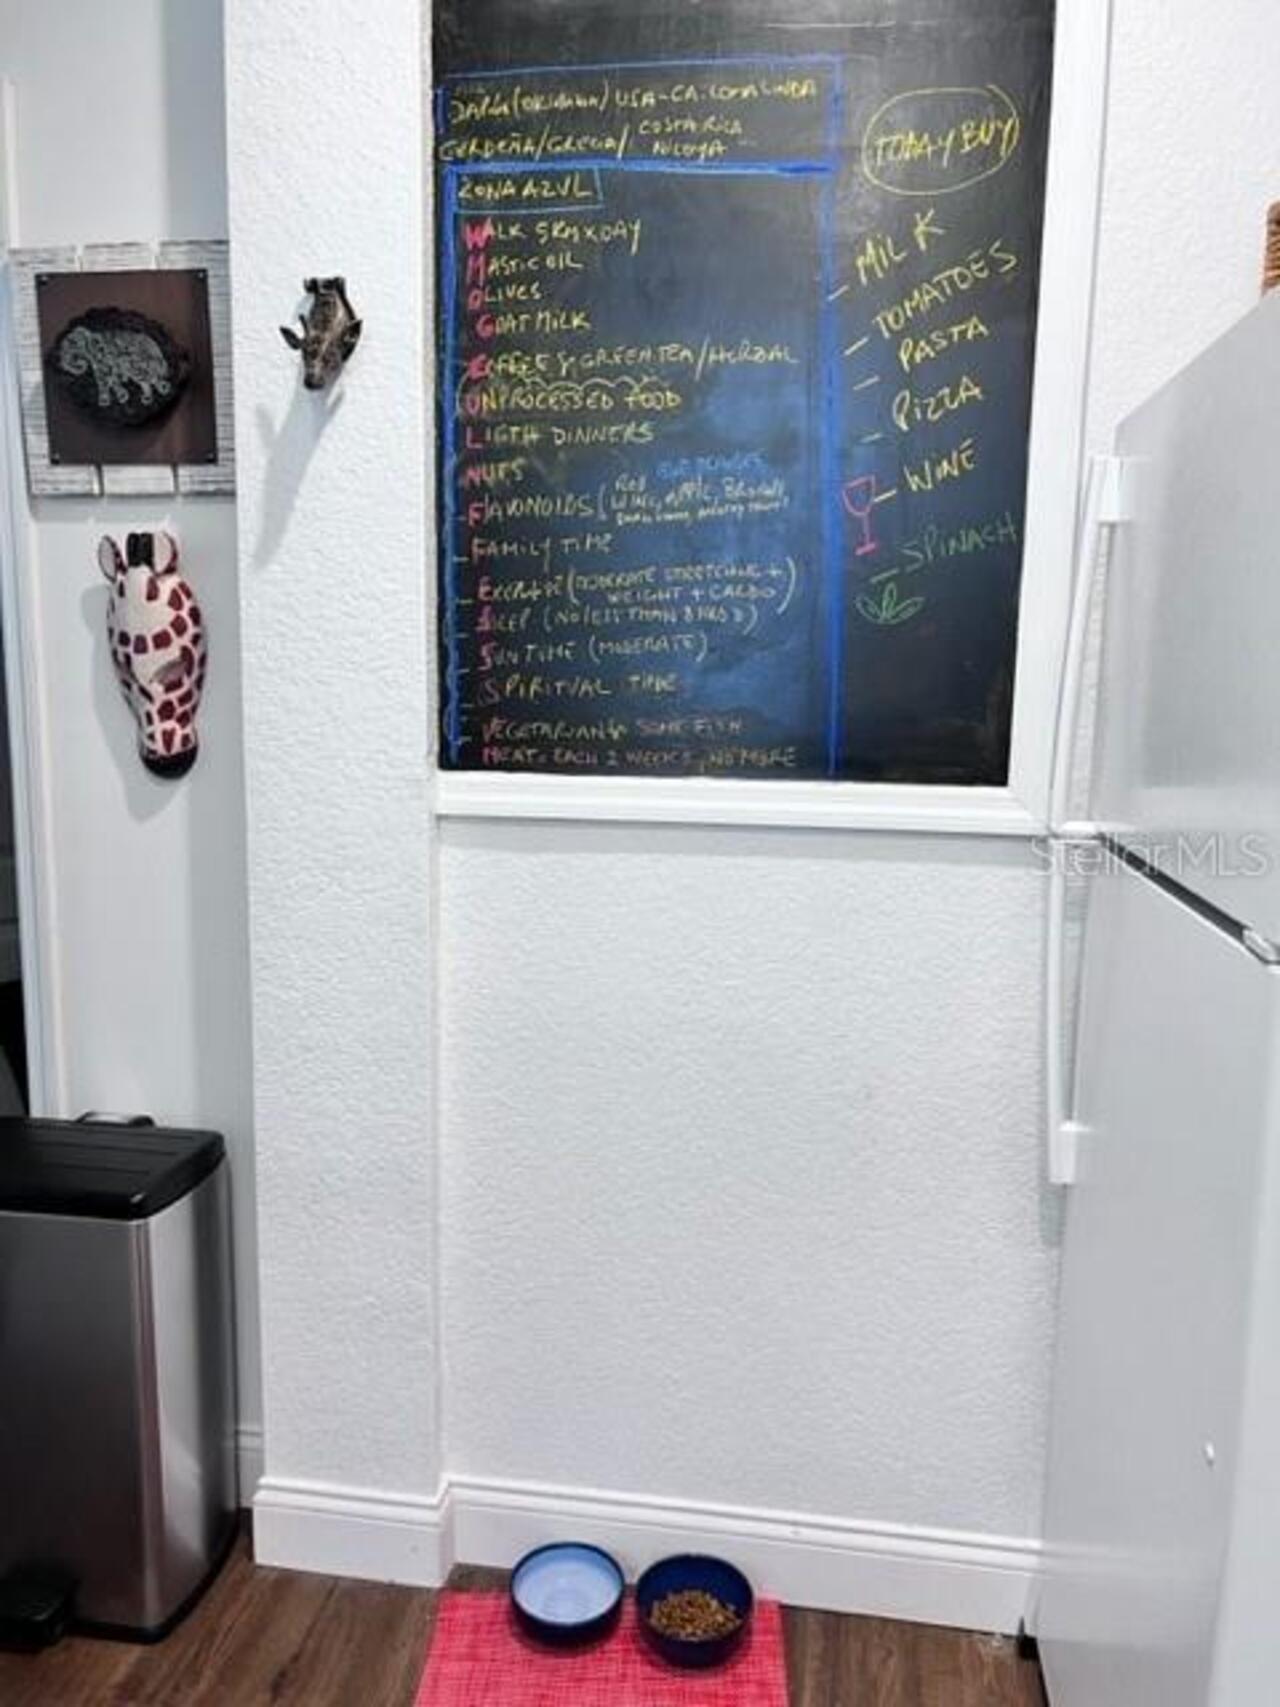 JAPAN (OKINAWA) / USA-CA-LOMA LINDA
CERDEÑA/GRECIA/ COSTA RICA
NICOYA
ZONA AZUL
WALK 5KM X DAY
MASTIC OIL
OLIVES
GOAT MILK
COFFEE & GREEN TEA / HERBAL
UNPROCESSED FOOD
LIGTH DINNERS
NUTS
FLAVONOIDS (RED WINE, APPLE,
FAMILY TIME
EXERCISE (MODERATE STRETCHING +
WEIGHT + CARDIO)
SLEEP (NO LESS THAN 8 HRS)
SUN TIME (MODERATE)
SPIRITUAL TIME
VEGETARIAN & SOME FISH
MEAT: EACH 2 WEEKS, NO MORE
TODAY BUY
- MILK
- TOMATOES
- PASTA
- PIZZA
- WINE
- SPINACH
Stellar MLS